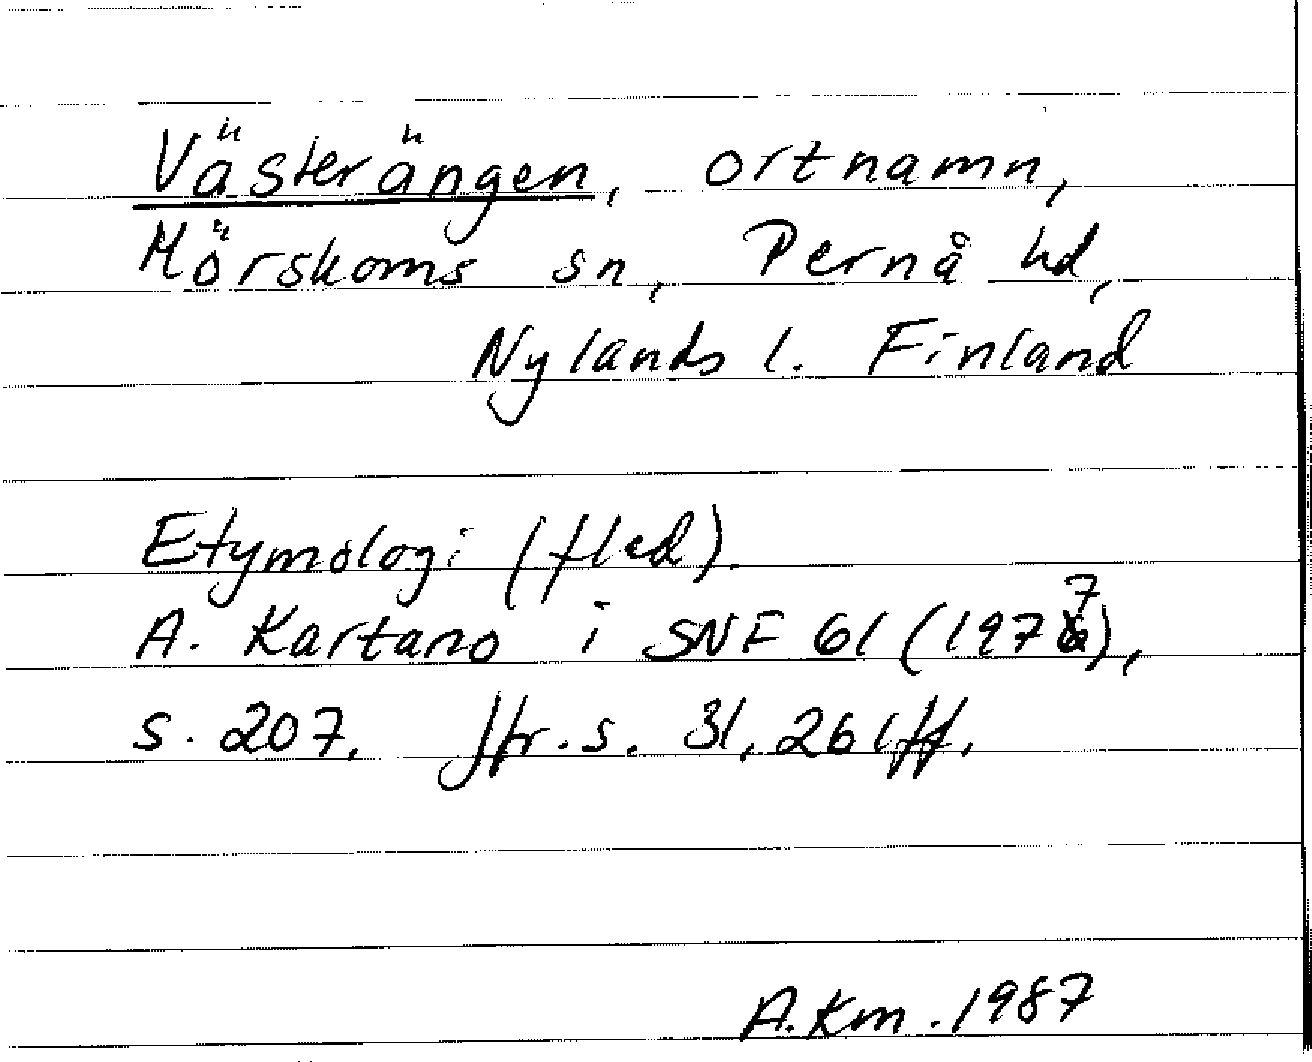 Västerängen, ortnamn,
Mörskoms sn, Pernå hd,
Nylands l. Finland
Etymologi (fled).
A. Kartano i SNF 61 (1977),
s. 207. Jfr. s. 31, 261ff.
A.Km. 1987